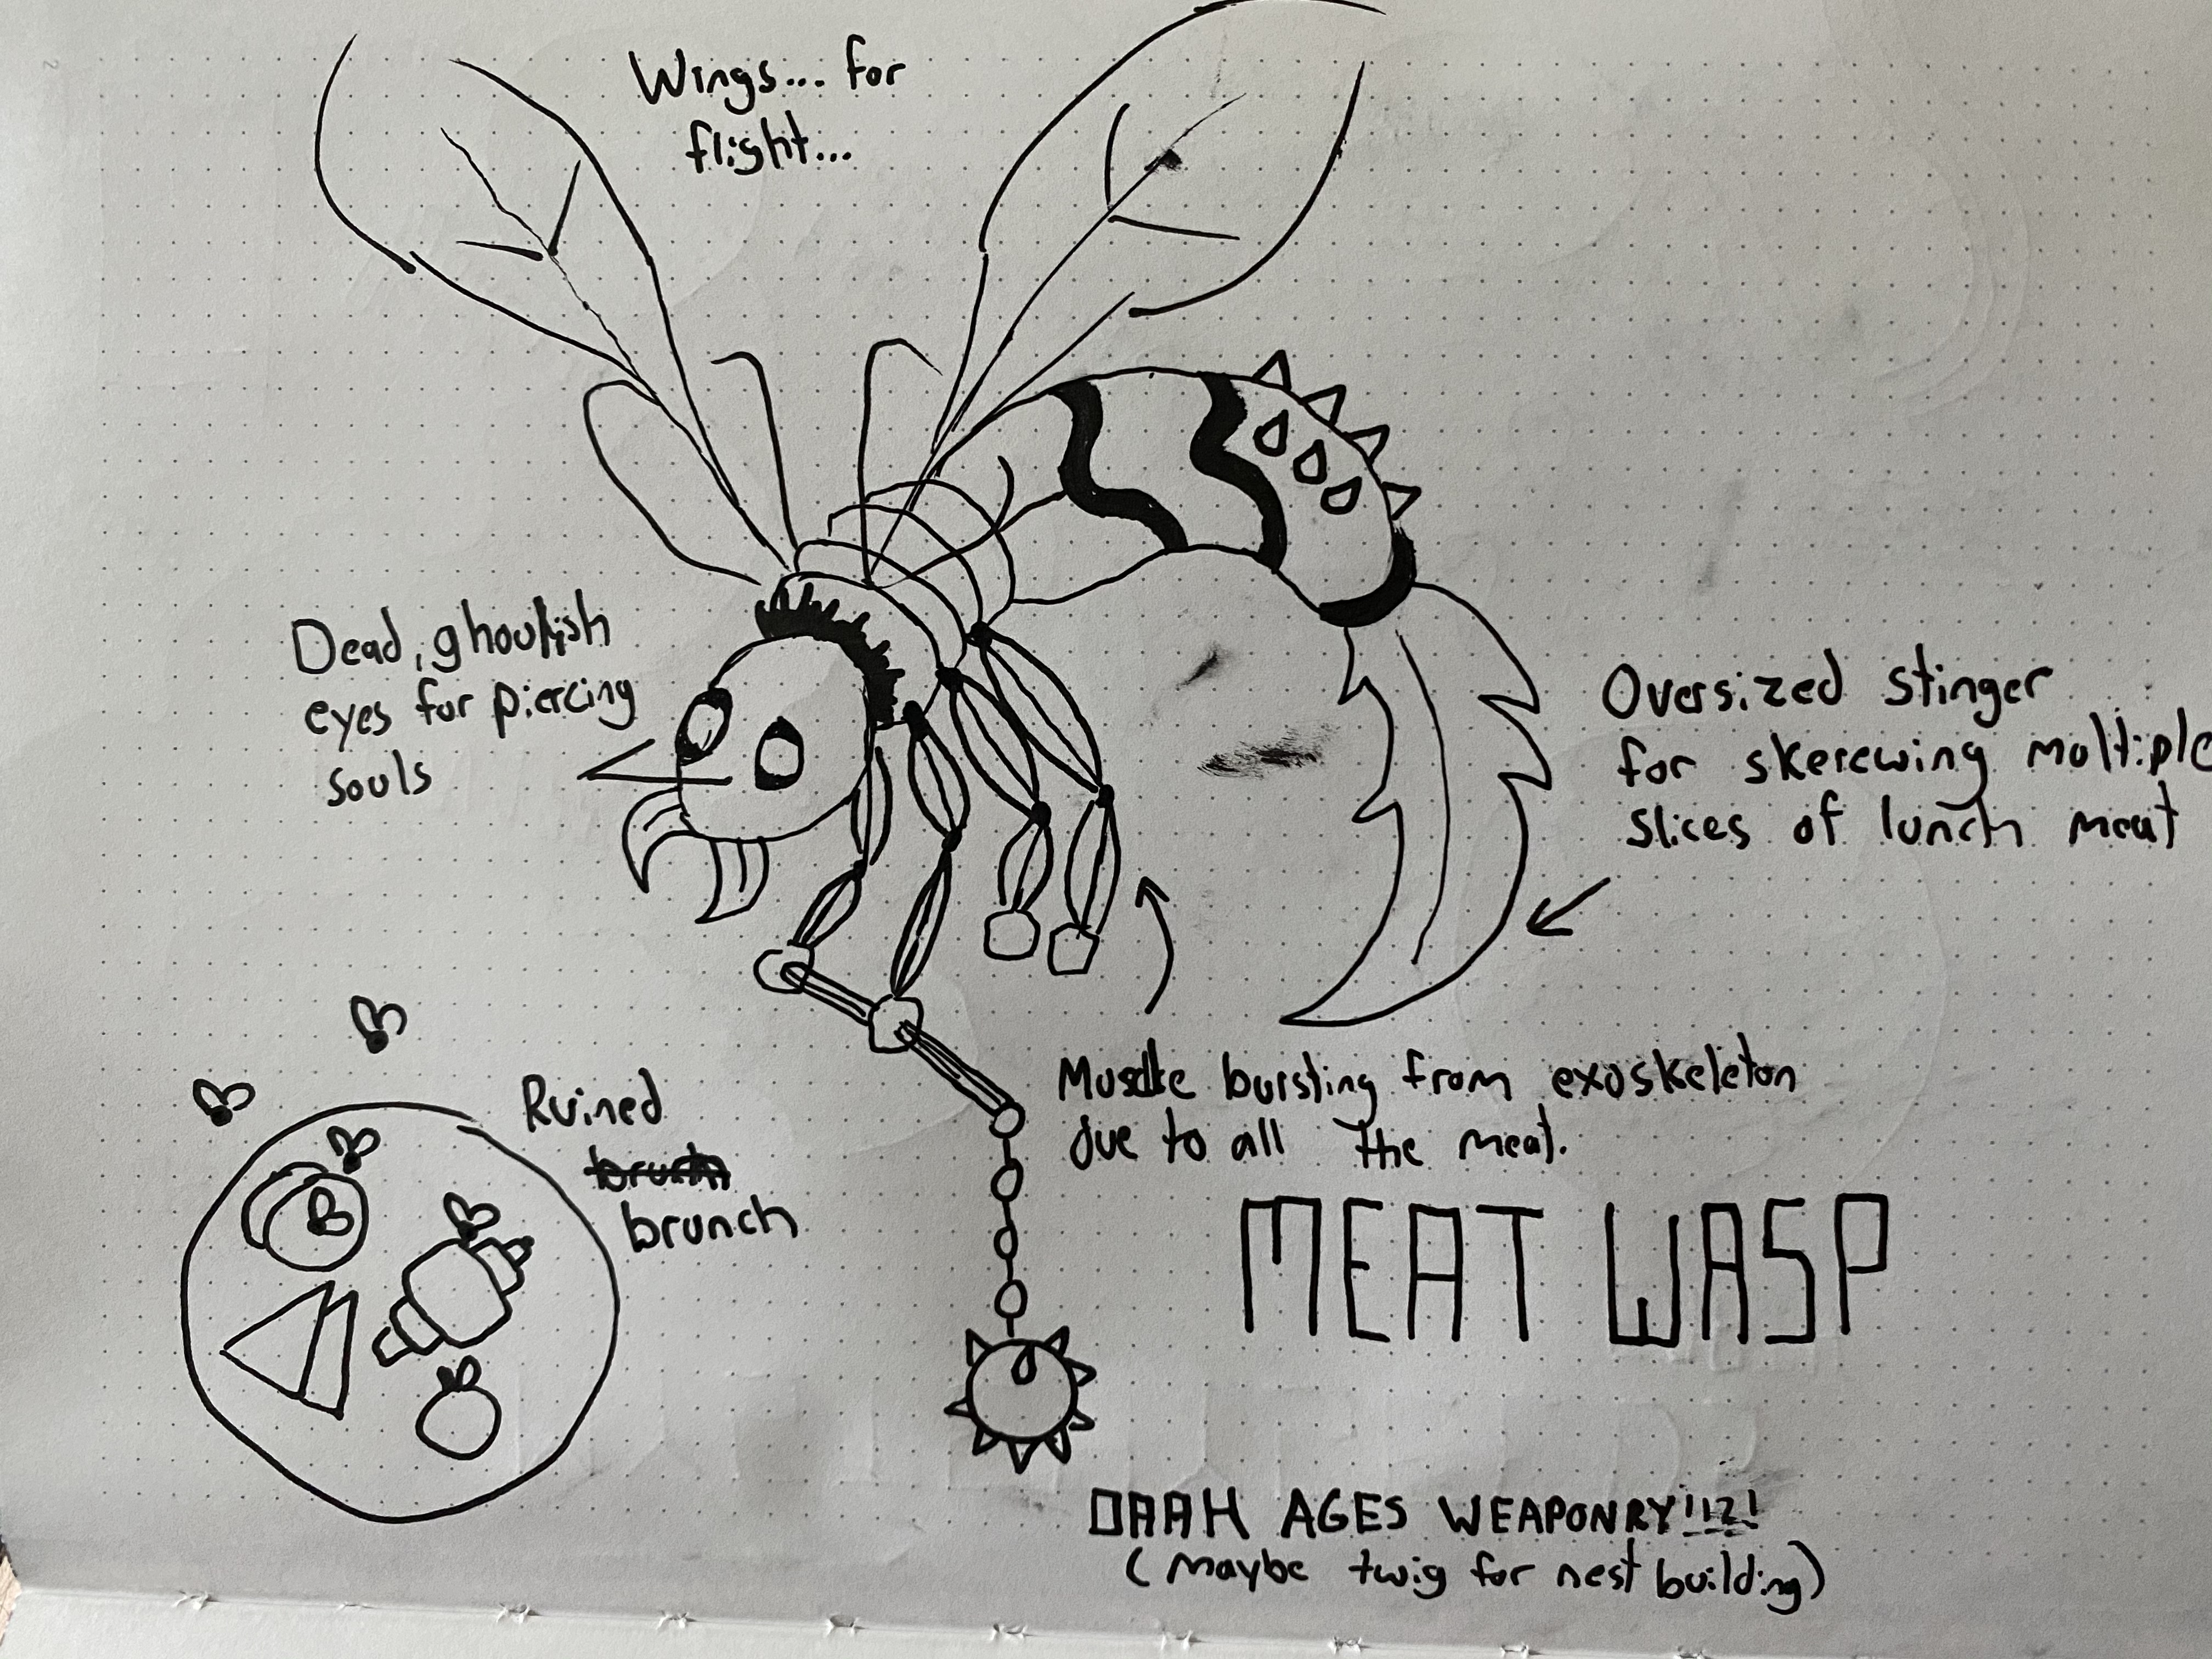 Wings... for
flight...
Dead, ghoulish
eyes for piercing
souls
Oversized stinger
for skerewing moltiple
slices of lunch meat
Muscle bursting from exoskeleton
due to all the meat.
Ruined
brunch
brunch
MEAT WASP
DAAH AGES WEAPONRY!!!?!
(Maybe twig for nest building)